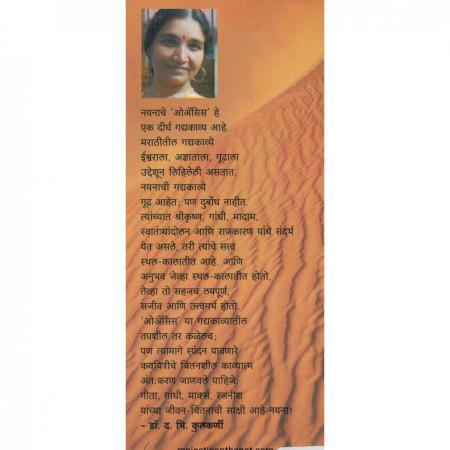 नयनाचे 'ओॲसिस' हे
एक दीर्घ गद्यकाव्य आहे.
मराठीतील गद्यकाव्ये
ईश्वराला, अज्ञाताला, गूढाला
उद्देशून लिहिलेली असतात.
नयनाची गद्यकाव्ये
गूढ आहेत; पण दुर्बोध नाहीत.
त्यांच्यात श्रीकृष्ण, गांधी, मादाम,
स्वातंत्र्यांदोलन आणि राजकारण यांचे संदर्भ
येत असले, तरी त्यांचे सत्त्व
स्थल-कालातीत आहे. आणि
अनुभव जेव्हा स्थल-कालातीत होतो,
तेव्हा तो सहजच लयपूर्ण,
सजीव आणि तत्त्वगर्भ होतो.
'ओॲसिस' या गद्यकाव्यातील
तपशील तर कळेलच;
पण त्यामागे स्पंदन पावणारे
कवयित्रीचे चिंतनशील काव्यात्म
अंतःकरण जाणवले पाहिजे.
गीता, गांधी, मार्क्स, रजनीश
यांच्या जीवन-चिंतनाची साक्षी आहे नयना!
- डॉ. द. भि. कुलकर्णी